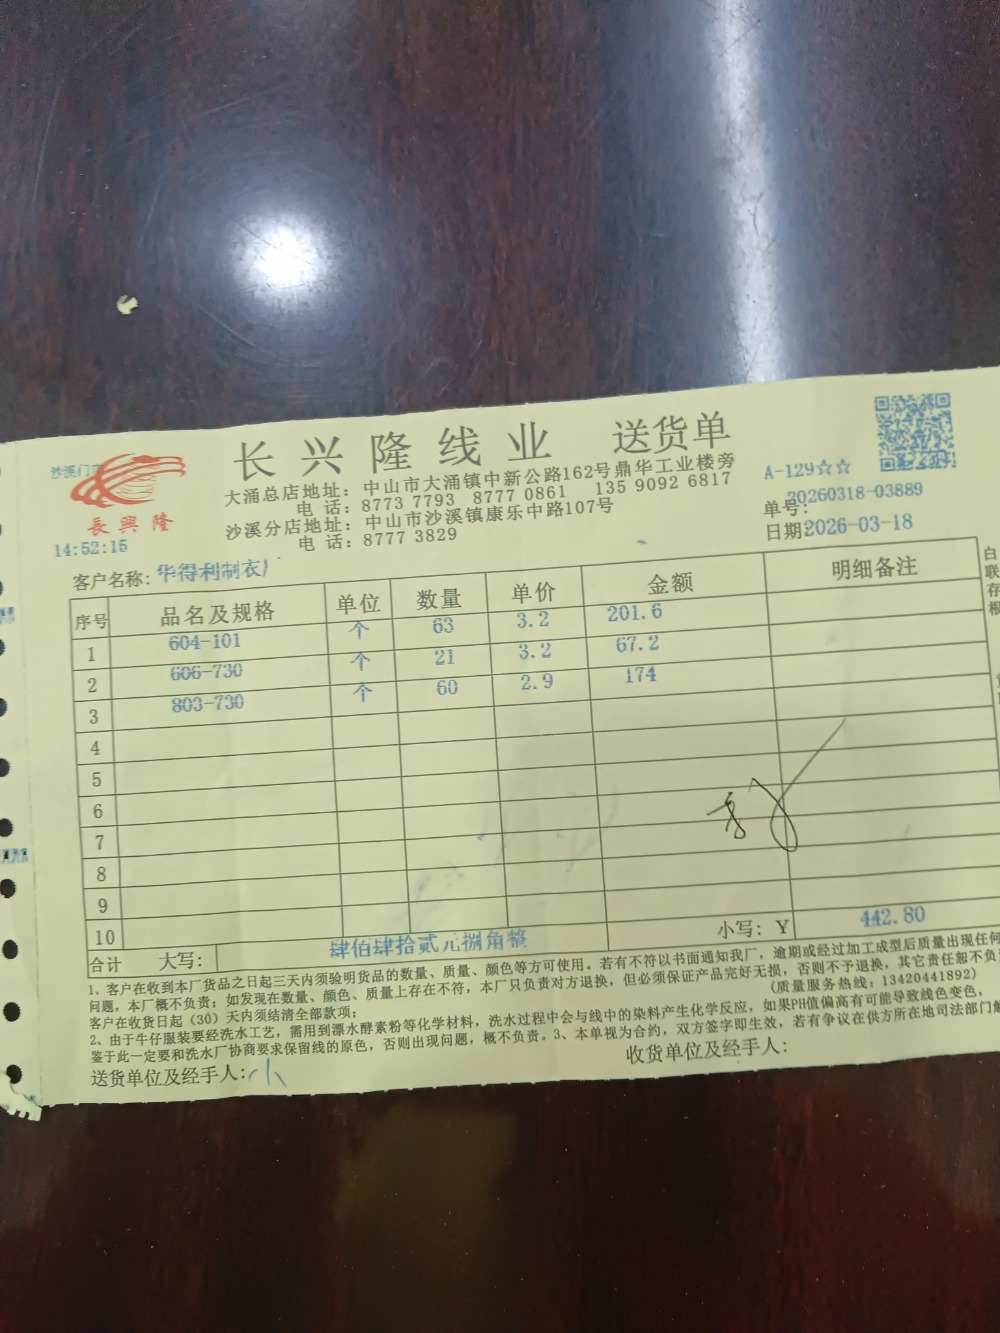 长兴隆线业 送货单
沙溪门
長興隆
14:52:15
大涌总店地址：中山市大涌镇中新公路162号鼎华工业楼旁
电 话：8773 7793 8777 0861 135 9092 6817
沙溪分店地址：中山市沙溪镇康乐中路107号
电 话：8777 3829
A-129☆☆
单号：20260318-03889
日期2026-03-18
客户名称：华得利制衣厂
序号 品名及规格 单位 数量 单价 金额 明细备注
1 604-101 个 63 3.2 201.6
2 606-730 个 21 3.2 67.2
3 803-730 个 60 2.9 174
4
5
6
7
8
9
10
合计 大写：肆佰肆拾贰元捌角整 小写：Y 442.80
1、客户在收到本厂货品之日起三天内须验明货品的数量、质量、颜色等方可使用。若有不符以书面通知我厂，逾期或经过加工成型后质量出现任何
问题，本厂概不负责；如发现在数量、颜色、质量上存在不符，本厂只负责对方退换，但必须保证产品完好无损，否则不予退换，其它责任恕不负
客户在收货日起（30）天内须结清全部款项；
(质量服务热线：13420441892)
2、由于牛仔服装要经洗水工艺，需用到漂水酵素粉等化学材料，洗水过程中会与线中的染料产生化学反应，如果PH值偏高有可能导致线色变色，
鉴于此一定要和洗水厂协商要求保留线的原色，否则出现问题，概不负责。3、本单视为合约，双方签字即生效，若有争议在供方所在地司法部门
送货单位及经手人：小
收货单位及经手人：
白联存根